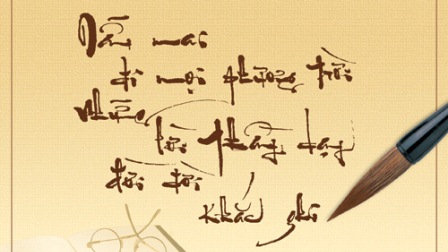 Dẫu mai
đi mọi phương trời
Những
lời thầy dạy
đời đời
khắc ghi